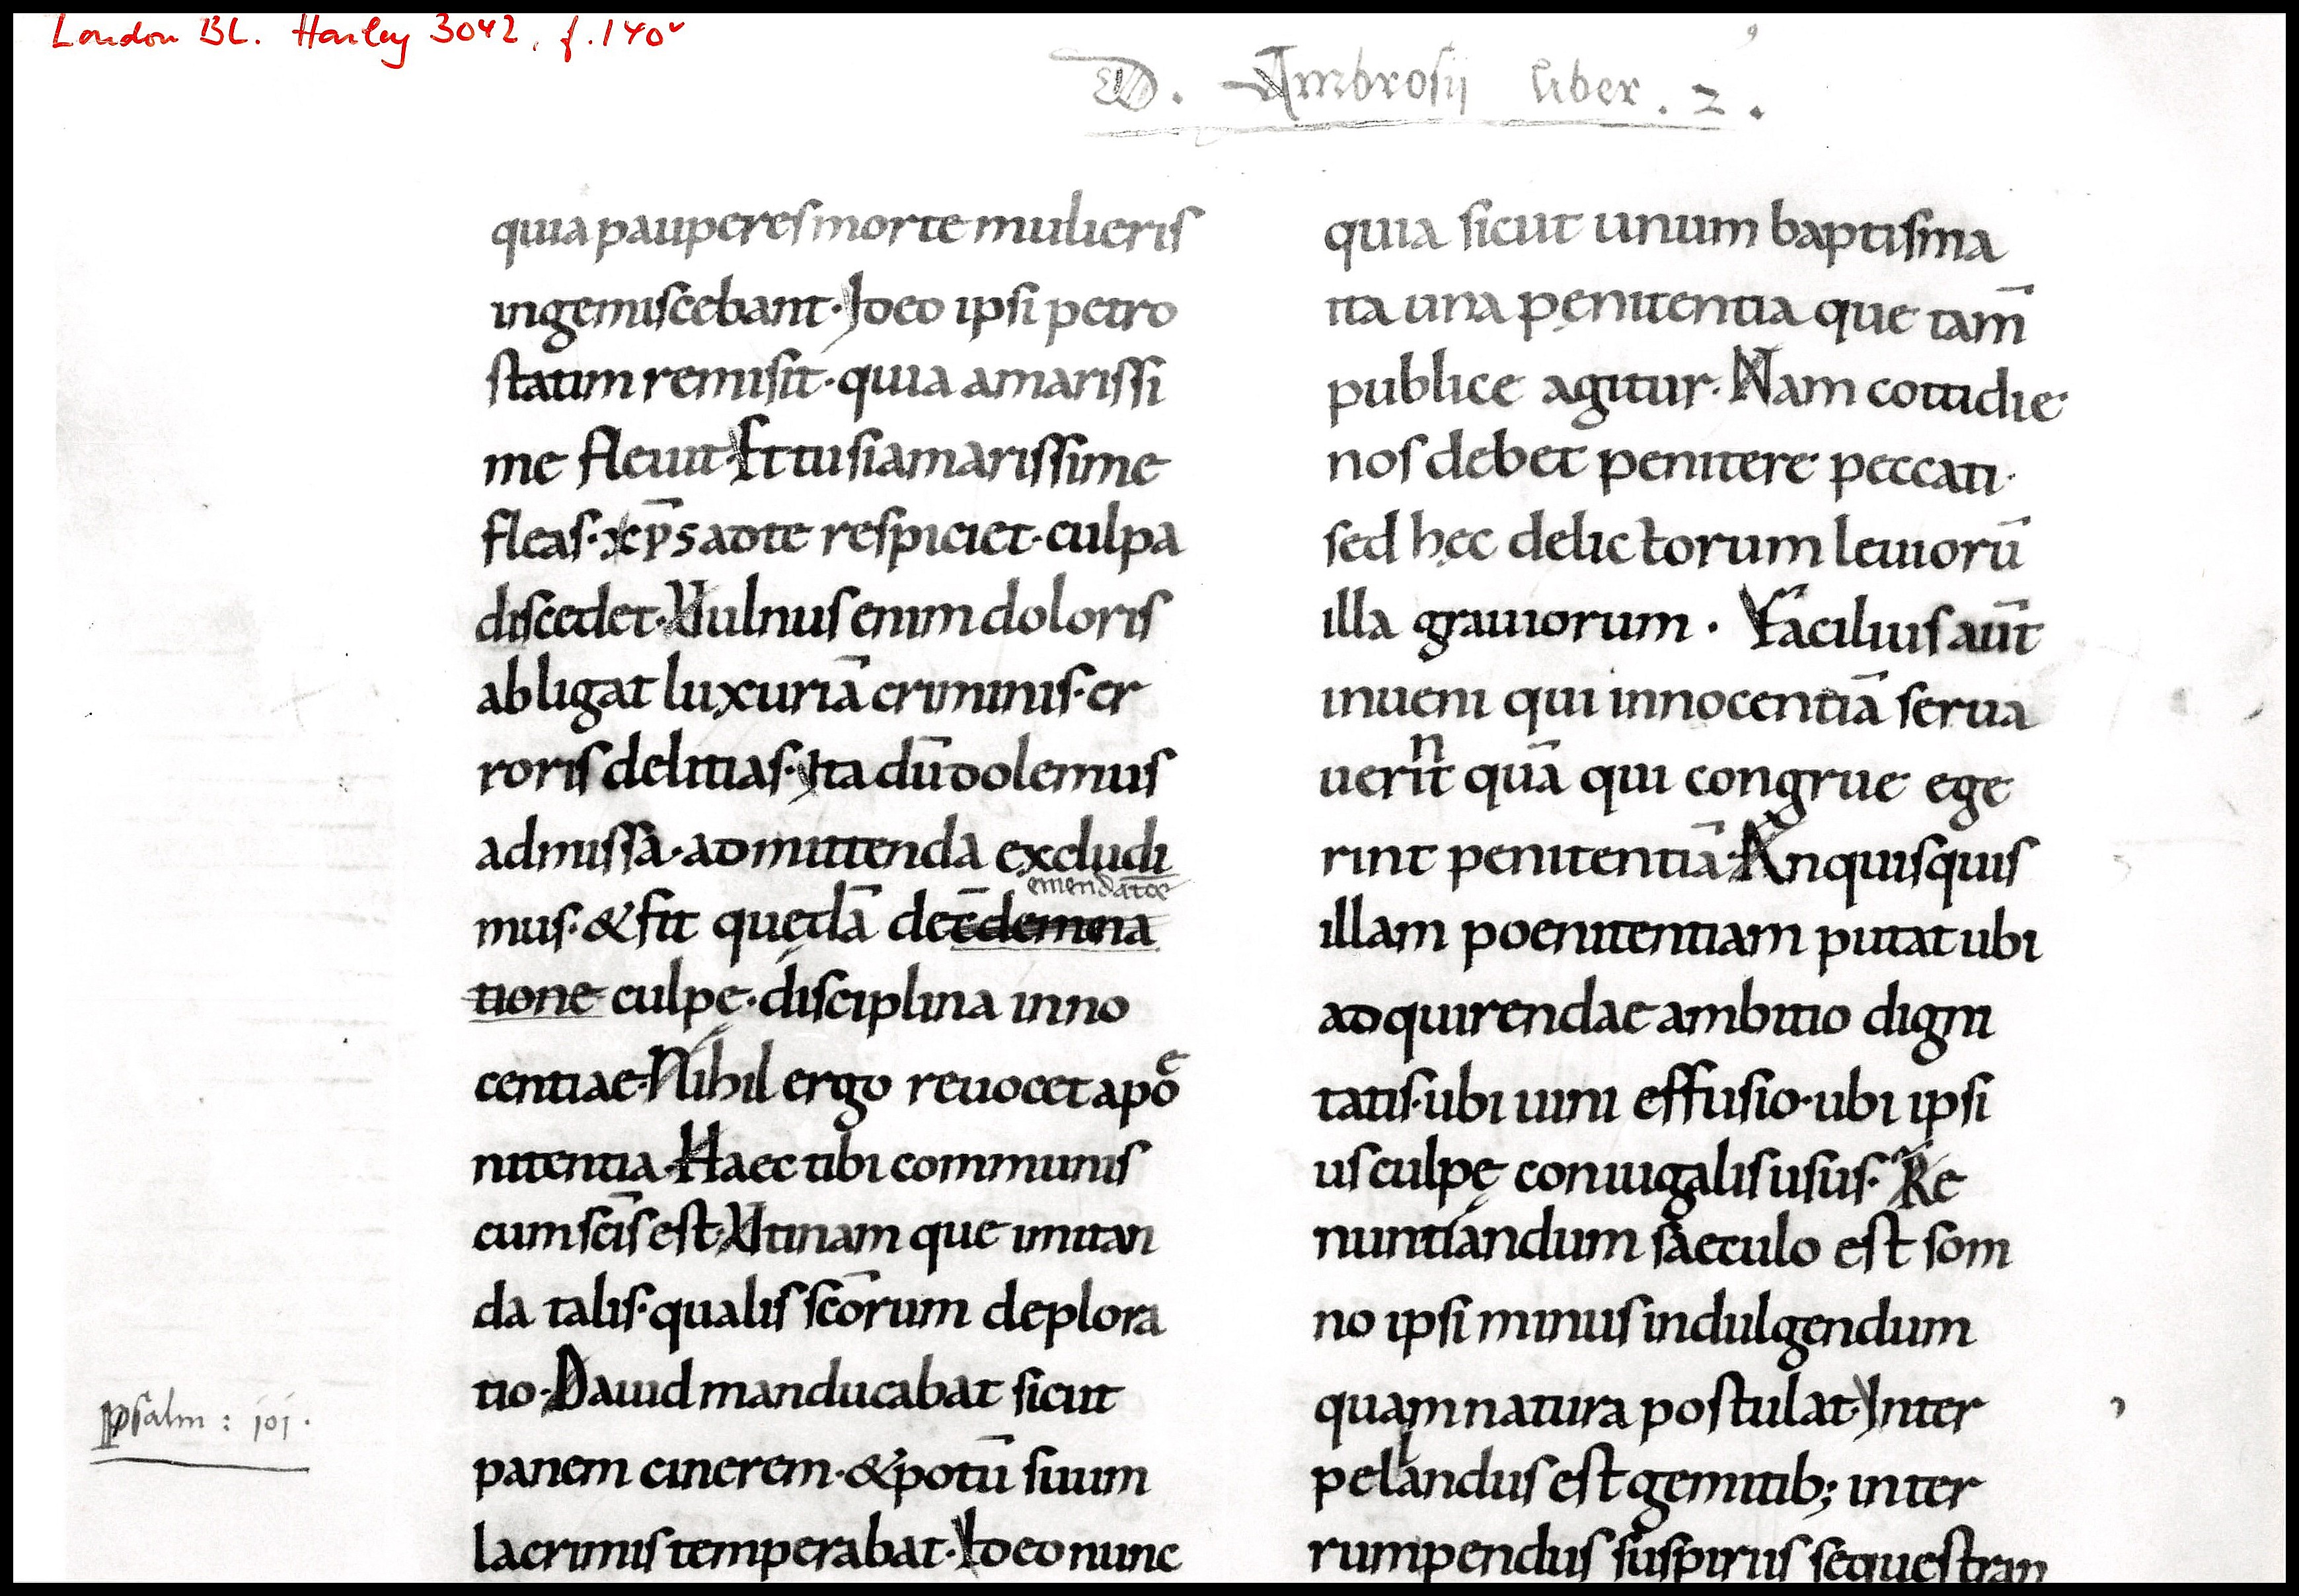 London BL. Harley 3042, f. 140v
D. Ambrosij liber . 2 .
quia pauperes morte mulieris
ingemiscebant · Ideo ipsi petro
statim remisit · quia amarissi
me fleuit · Et tu si amarissime
fleas · xp̄s ad te respiciet · culpa
discedet · Vulnus enim doloris
abligat luxuriā criminis · er
roris delitias · Ita dū dolemus
admissa · admittenda excludi
emendatōe
mus · & fit quędā de c̄demna
tione culpę · disciplina inno
centiae · Nihil ergo reuocet a poe
nitentia · Haec tibi communis
cum sc̄is est · Vtinam que imitan
da talis · qualis sc̄orum deplora
tio · Dauid manducabat sicut
Psalm : 101 .
panem cinerem · & potū suum
lacrimis temperabat · Ideo nunc
quia sicut unum baptisma
ita una pęnitentia que tam̄
publice agitur · Nam cottidie
nos debet penitere peccati ·
sed hęc delictorum leuiorū
illa grauiorum · Facilius aūt
inueni qui innocentiā serua
uerint quā qui congrue ege
rint penitentiā · An quisquis
illam poenitentiam putat ubi
adquirendae ambitio digni
tatis · ubi uini effusio · ubi ipsi
us culpę coniugalis usus · Re
nuntiandum saeculo est som
no ipsi minus indulgendum
quam natura postulat · Inter
pellandus est gemitib; inter
rumpendus suspiriis sequestran